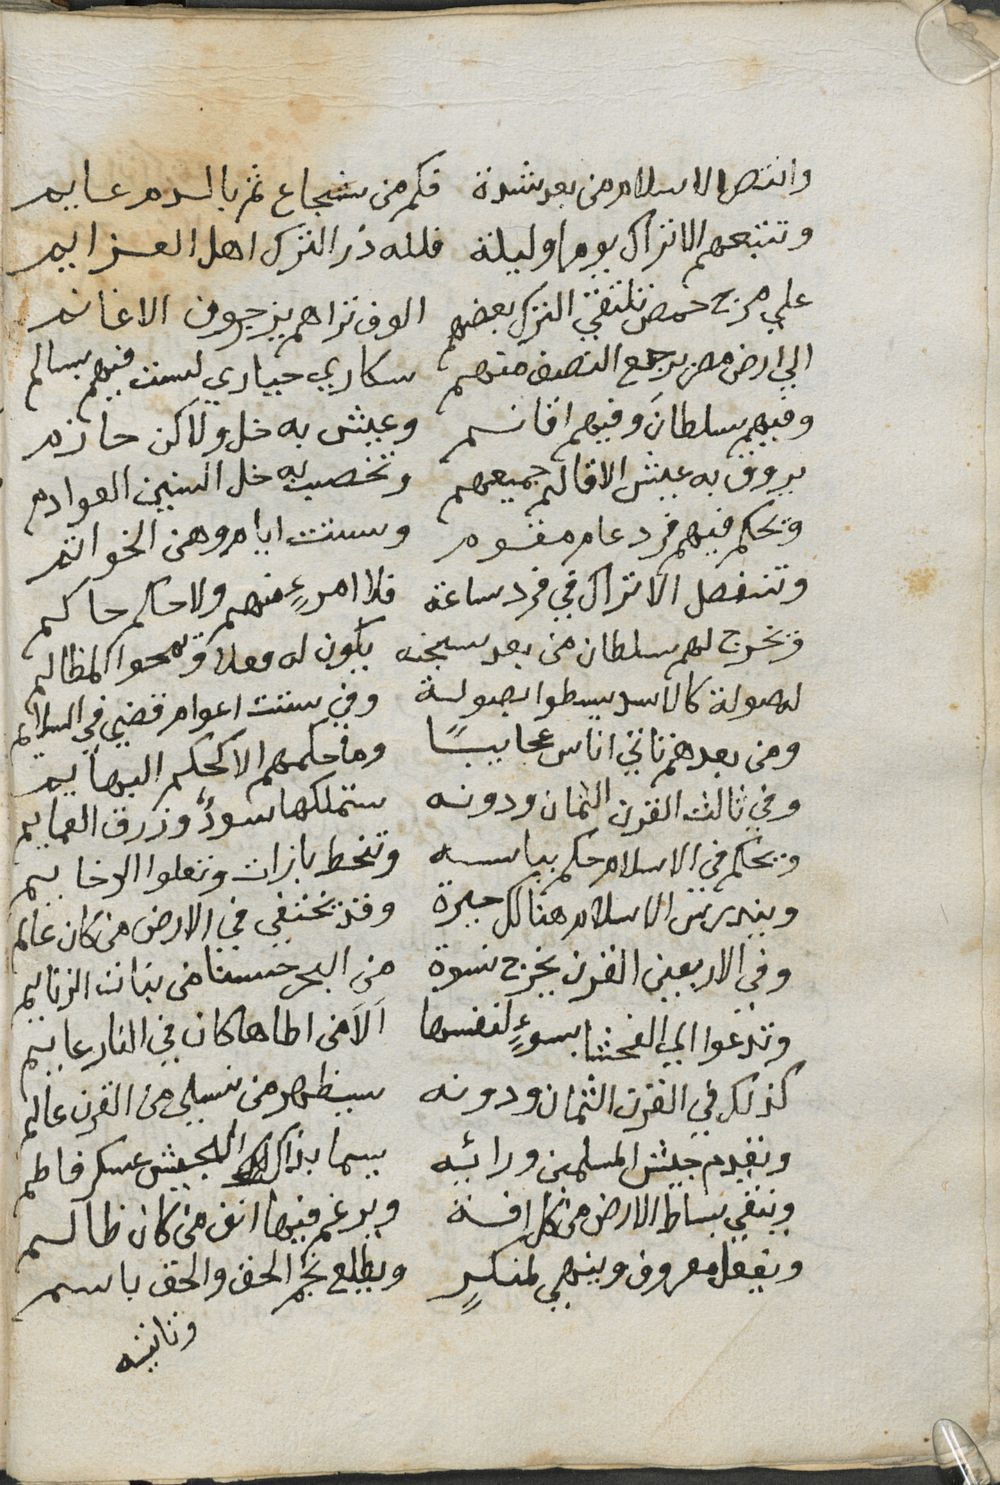 وانتصر الاسلام من بعد شدة فكم من شجاع ثم بالدم عايم
وتتبعهم الاتراك يوما وليلة فلله در الترك اهل العزايم
علي مرج حمص تلتقي الترك بعضهم الوف تراهم يزجرون الاغانم
الي ارض مصر يرجع النصف منهم سكاري حياري ليست فيهم سالم
وفيهم سلطان وفيهم اقانسم وعيش به خل ولاكن حازم
يروق به عيش الاقالم جميعهم وتخصب به خل السنين العوادم
وتحكم فيهم فرد عام مقوم وستت ايام وهن الخواتم
وتنفصل الاتراك في فرد ساعة فلا امرٍ عنهم ولا حكم حاكم
وتخرج لهم سلطان من بعد سجنه يكون له وعلا وتمحوا المظالم
له صولة كالاسد يسطوا بصولة وفي ستت اعوام قضي في السلايم
ومن بعدهم تاتي اناس عجايباً وما حكمهم الا كحكم البهايم
وفي ثالث القرن الثمان ودونه ستملكها سودٌ وزرق العمايم
ويحكم في الاسلام حكم بياسه وتنحط بازات وتعلوا الرخايم
ويندرس الاسلام هنالك حيرة وقد يختفي في الارض من كان عالم
وفي الاربعين القرن يخرج نسوة من البحر حسنا من بنات الزنايم
وتدعوا الي الفحشا بسوءٍ لنفسها الا من اطاها كان في النار عايم
كذلك في القرن الثمان ودونه سيظهر من نسلي من القرن عالم
وتقدم جيش المسلمين ورائيه يسما بذاك الجيش عسكر فاطم
وينقي بساط الارض من كل افة ويرغم فيها انف من كان ظالم
ويفعل معروف وينهي لمنكرٍ ويطلع نجم الحق والحق باسم
وتاتيه